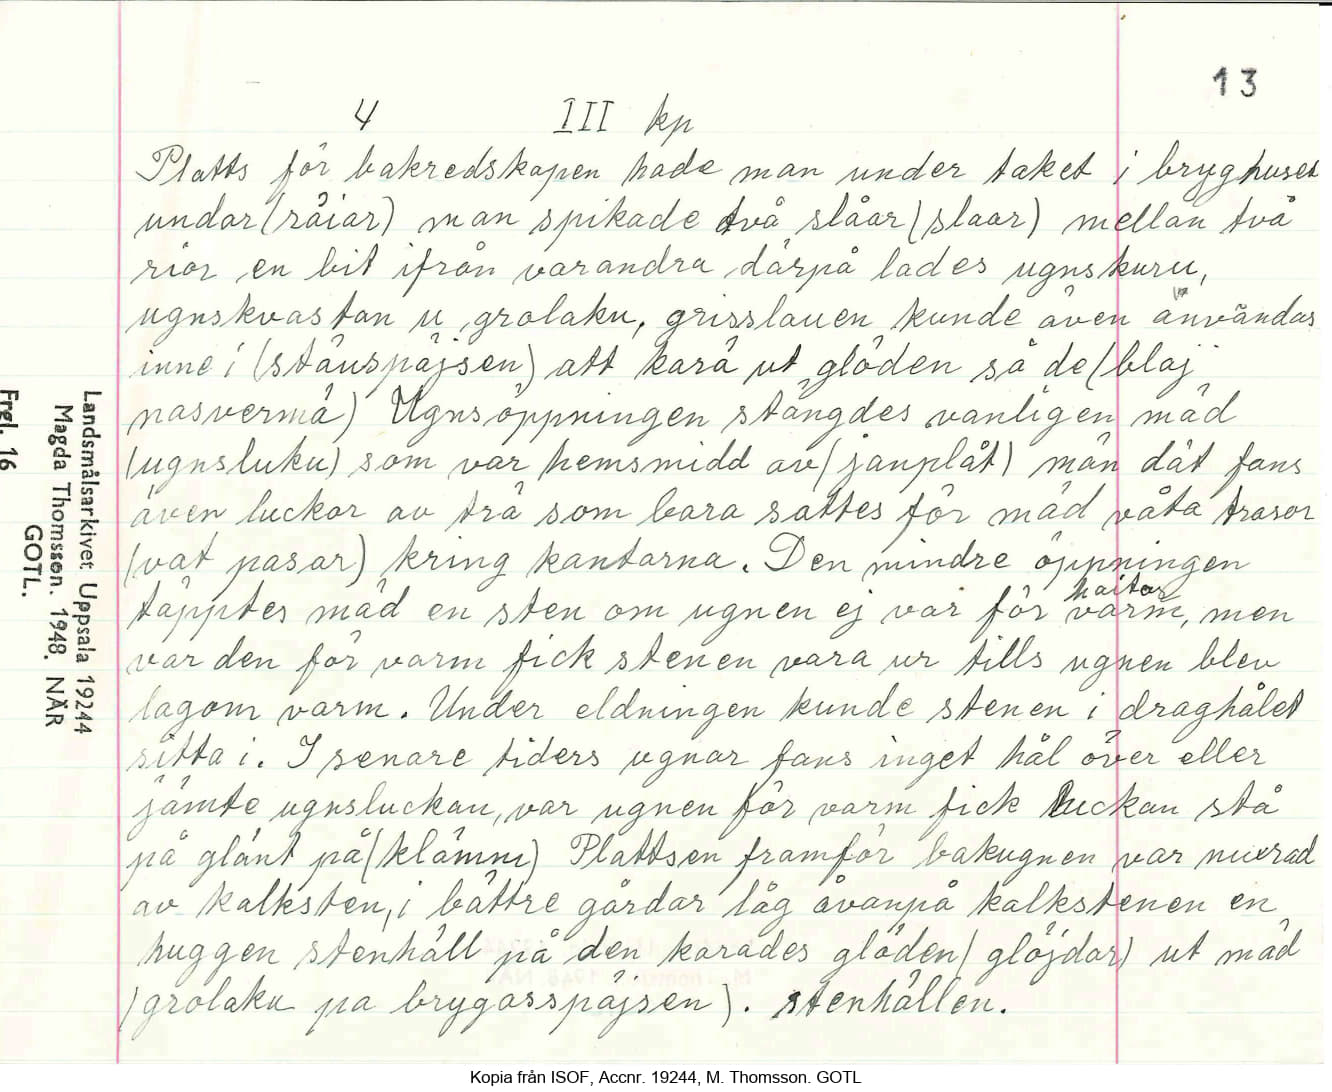 13
4 III kp
Platts för bakredskapen hade man under taket i bryghuset
undar (räiar) man spikade två slåar (slaar) mellan två
riar en bit ifrån varandra därpå lades ugnskuru,
ugnskvastan u grolaku, grisslauen kunde även användas
inne i (stäuspäjsen) att kara ut glöden så de (blaj
nasvermä) Ugnsöppningen stängdes vanligen mäd
(ugnsluku) som var hemsmidd av (janplåt) män dät fans
även luckor av trä som bara sattes för mäd våta trasor
(vat pasar) kring kantarna. Den mindre öppningen
täpptes mäd en sten om ugnen ej var för varm, men
haitar
var den för varm fick stenen vara ur tills ugnen blev
lagom varm. Under eldningen kunde stenen i draghålet
sitta i. I senare tiders ugnar fans inget hål över eller
jämte ugnsluckan, var ugnen för varm fick luckan stå
på glänt på (klämm) Plattsen framför bakugnen var murad
av kalksten, i bättre gårdar låg åvanpå kalkstenen en
huggen stenhäll på den karades glöden (glöjdar) ut mäd
(grolaku pa brygasspäjsen). stenhällen.
Landsmålsarkivet Uppsala 19244
Magda Thomsson. 1948. NÄR
GOTL.
Frgl. 16
Kopia från ISOF, Accnr. 19244, M. Thomsson. GOTL